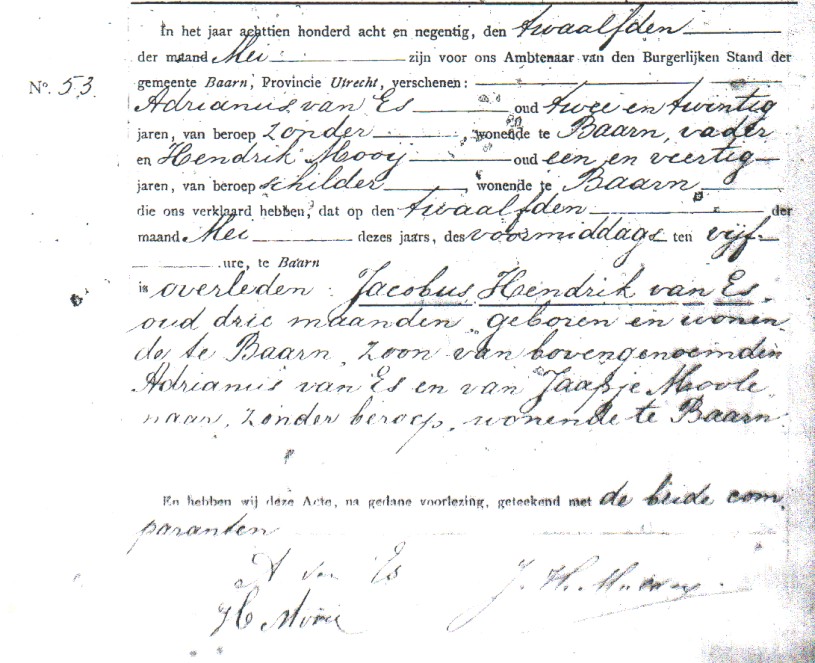 In het jaar achttien honderd acht en negentig, den twaalfden
der maand Mei zijn voor ons Ambtenaar van den Burgerlijken Stand der
No. 53 gemeente Baarn, Provincie Utrecht, verschenen:
Adrianus van Es oud twee en twintig
jaren, van beroep zonder, wonende te Baarn, vader
en Hendrik Mooij oud een en veertig
jaren, van beroep schilder, wonende te Baarn
die ons verklaard hebben, dat op den twaalfden der
maand Mei dezes jaars, des voormiddags ten vijf
ure, te Baarn
is overleden: Jacobus Hendrik van Es,
oud drie maanden, geboren en wonen
de te Baarn, zoon van bovengenoemden
Adrianus van Es en van Jaapje Moole
naar, zonder beroep, wonende te Baarn.
En hebben wij deze Acte, na gedane voorlezing, geteekend met de beide com
paranten
A van Es
J. H.
H